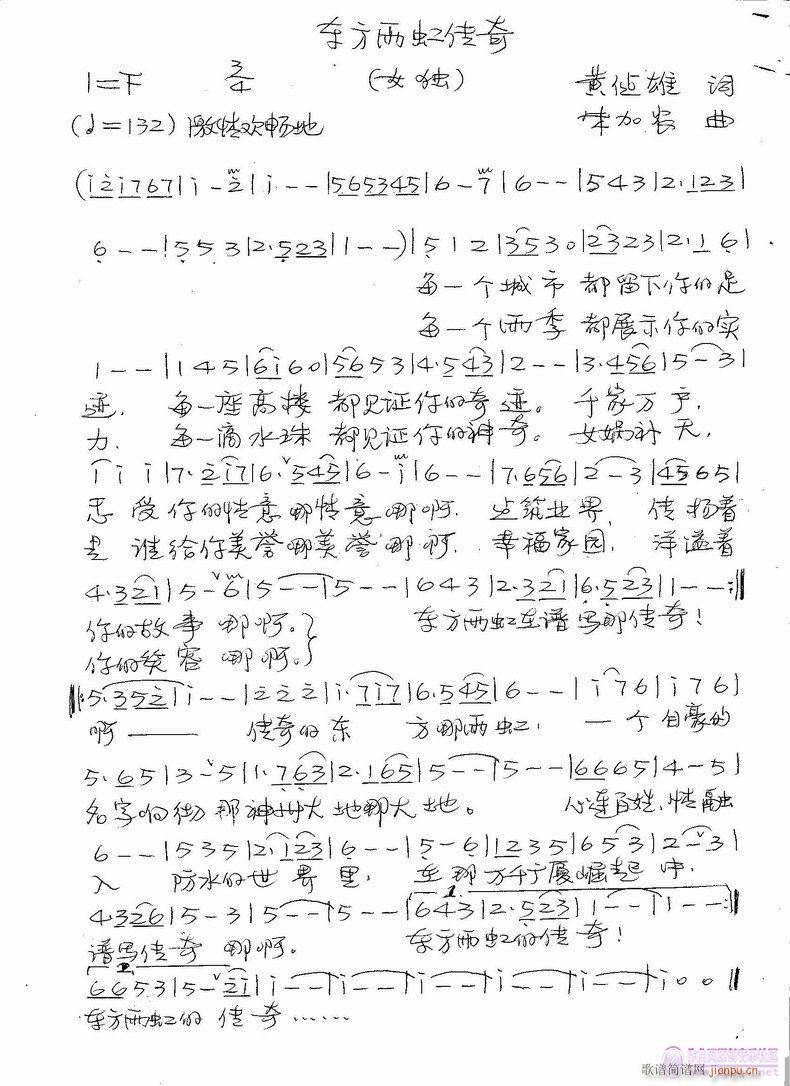 东方雨虹传奇
1=F 3/4 (女独) 黄 雄 词
(♩=132) 激情欢畅地 加农 曲
(i 2 i 7 6 7 | i - 2 | i - - | 5 6 5 3 4 5 | 6 - 7 | 6 - - | 5 4 3 | 2. 1 2 3 |
6 - - | 5 5 3 | 2. 5 2 3 | 1 - -) | 5 1 2 | 3 5 3 0 | 2 3 2 3 | 2. 1 6 |
每一个城市 都留下你的足
每一个雨季 都展示你的实
1 - - | 1 4 5 | 6 i 6 0 | 5 6 5 3 | 4. 5 4 3 | 2 - - | 3. 4 5 6 | 5 - 3 |
迹. 每一座高楼 都见证你的奇迹。 千家万户,
力. 每一滴水珠 都见证你的神奇。 女娲补天,
i i i | 7. 2 i 7 | 6. 5 4 5 | 6 - i | 6 - - | 7. 6 5 6 | 2 - 3 | 4 5 6 5 |
受你的情意哪情意哪啊. 筑业界, 传扬着
是谁给你美誉哪美誉哪啊. 幸福家园, 洋溢着
4. 3 2 1 | 5 - 6 | 5 - - | 5 - - | 6 4 3 | 2. 3 2 1 | 6. 5 2 3 | 1 - - :||
你的故事 哪啊。} 东方雨虹在谱写那传奇!
你的笑容 哪啊。}
||: 5. 3 5 2 | i - - | 2 2 2 | i. 7 i 7 | 6. 5 4 5 | 6 - - | i 7 6 | i 7 6 |
啊—— 传奇的东 方哪雨虹, 一个自豪的
5. 6 5 | 3 - 5 | 1. 7 6 3 | 2. 1 6 5 | 5 - - | 5 - - | 6 6 6 5 | 4 - 5 |
名字响彻 那神州大地哪大地。 心连百姓,情融
6 - - | 5 3 5 | 2. 1 2 3 | 6 - - | 5 - 6 | 1 2 3 5 | 6 5 3 | 2 - 3 |
入 防水的世界里, 在那万千广厦崛起中,
4. 3 2 6 | 5 - 3 | 5 - - | 5 - - | 1. 6 4 3 | 2. 5 2 3 | 1 - - | 1 - - :||
谱写传奇 哪啊。 东方雨虹的传奇!
2. 6 6 5 3 | 5 - 2 i | i - - | i - - | i - - | i - - | i - - | i 0 0 ||
东方雨虹的 传奇……
歌谱简谱网 jianpu.cn